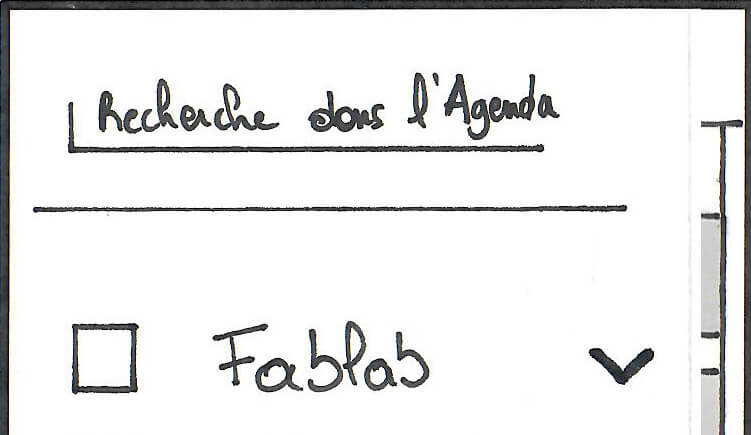 Recherche dans l'Agenda
Fablab